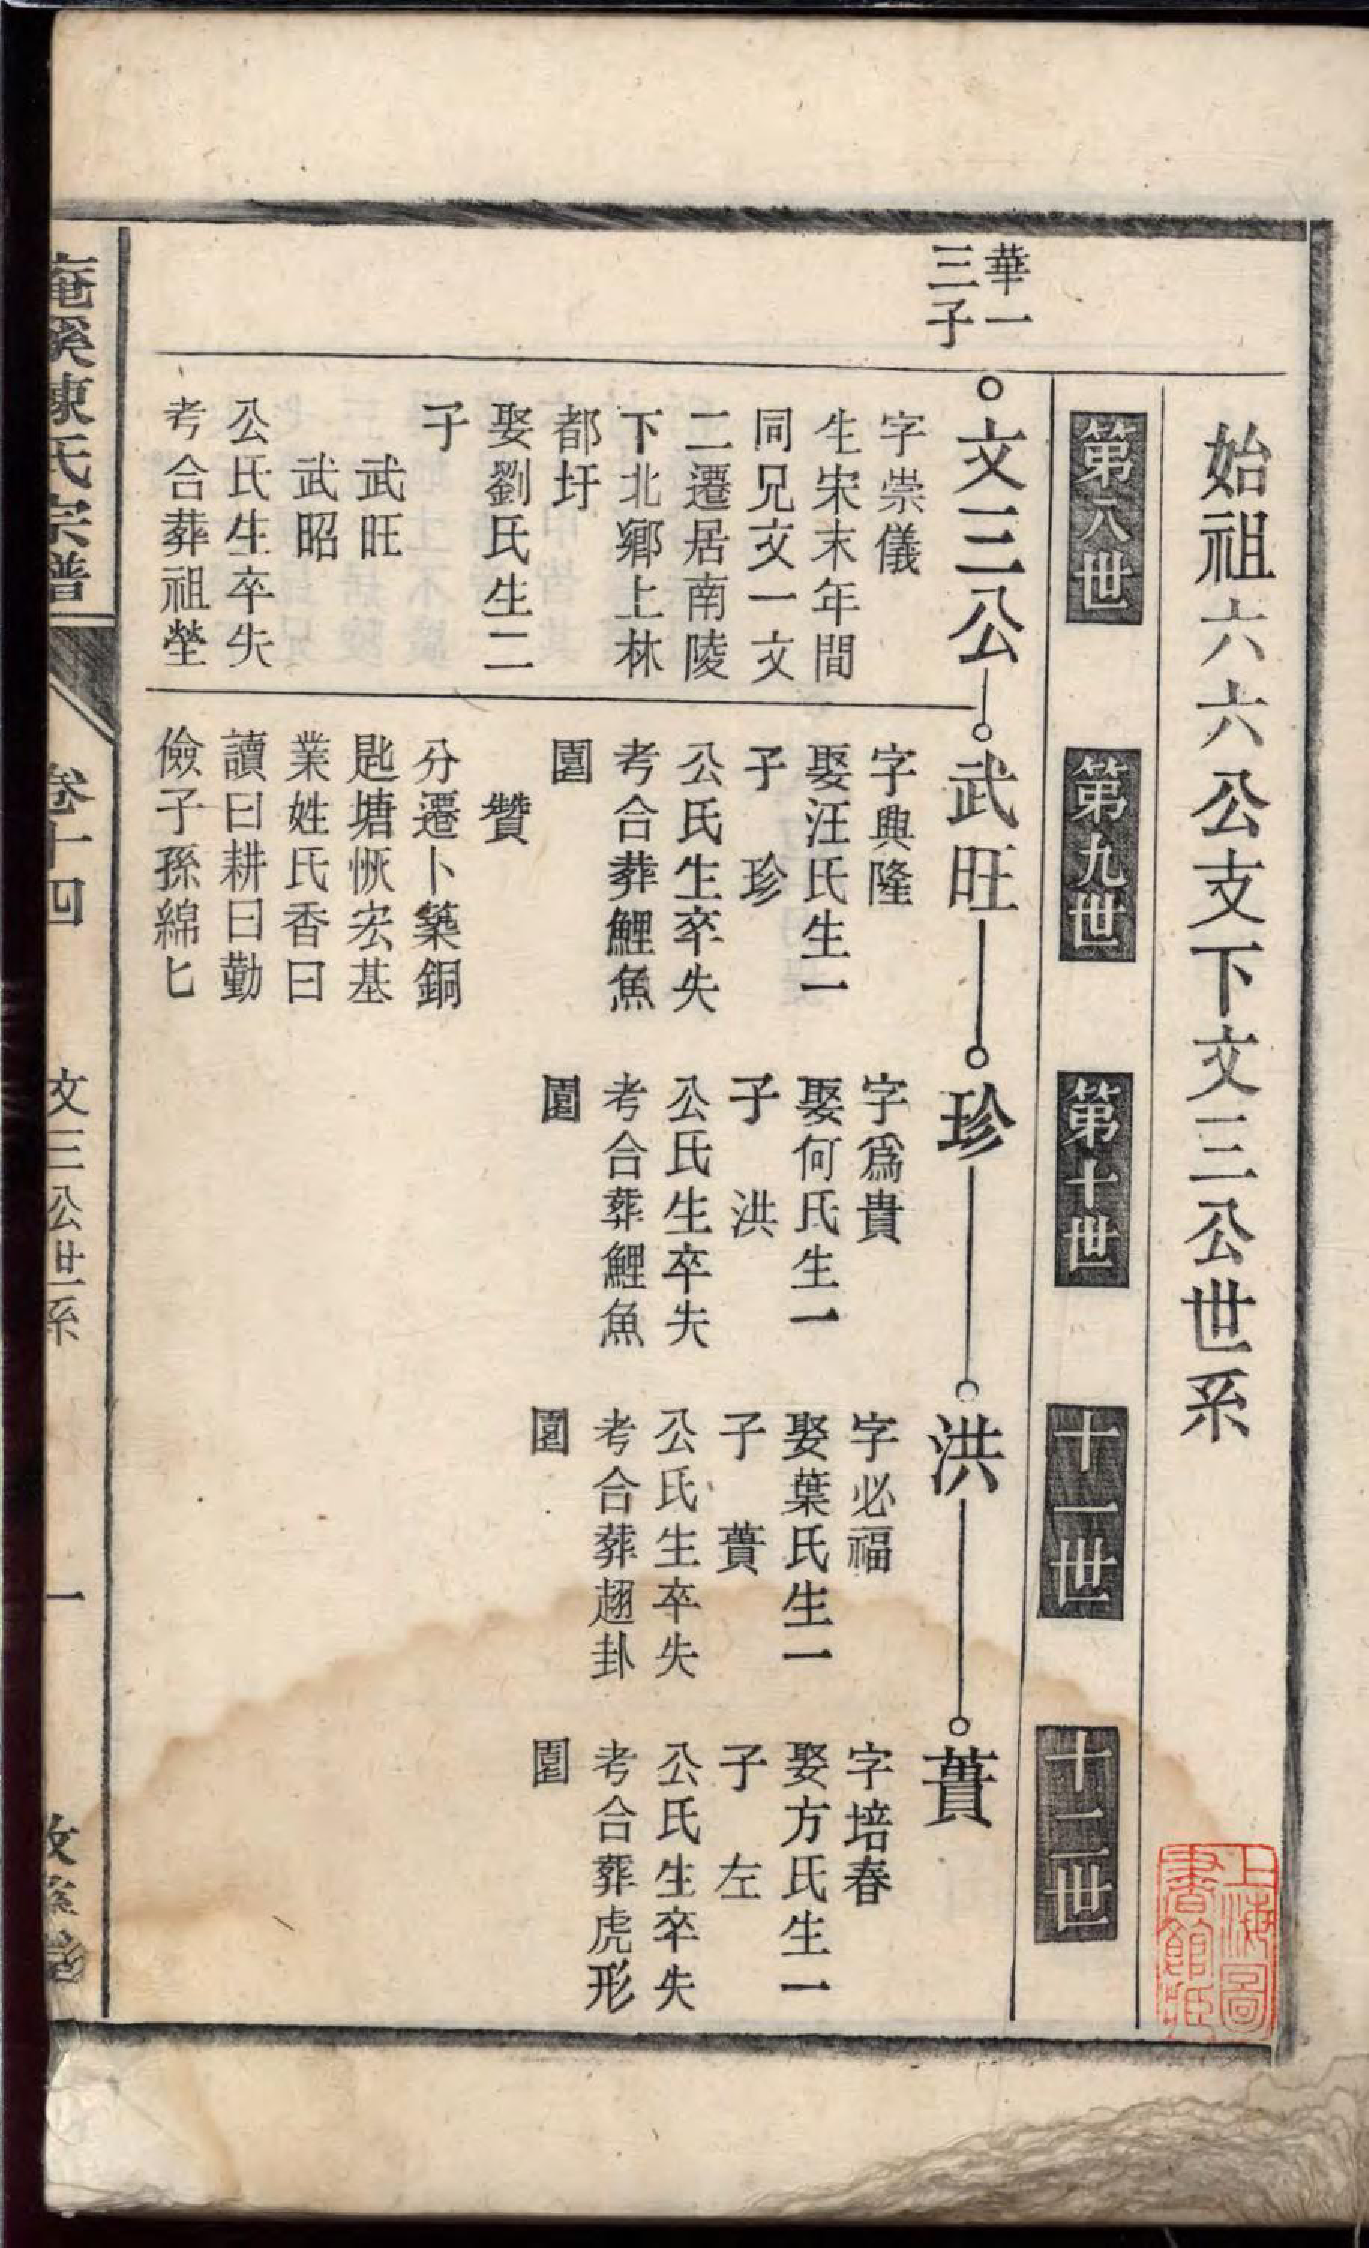 始祖六六公支下文三公世系
第八世
第九世
第十世
十一世
十二世
華一
三子
文三公
字崇儀
生宋末年間
同兄文一文
二遷居南陵
下北鄉上林
都圩
娶劉氏生二
子
武旺
武昭
公氏生卒失
考合葬祖塋
武旺
字興隆
娶汪氏生一
子 珍
公氏生卒失
考合葬鯉魚
園
贊
分遷卜築銅
匙塘恢宏基
業姓氏香曰
讀曰耕曰勤
儉子孫綿匕
珍
字為貴
娶何氏生一
子 洪
公氏生卒失
考合葬鯉魚
園
洪
字必福
娶葉氏生一
子 蕢
公氏生卒失
考合葬趐卦
園
蕢
字培春
娶方氏生一
子 左
公氏生卒失
考合葬虎形
園
陳氏宗譜
卷十四
文三公世系
一
上海圖
書館